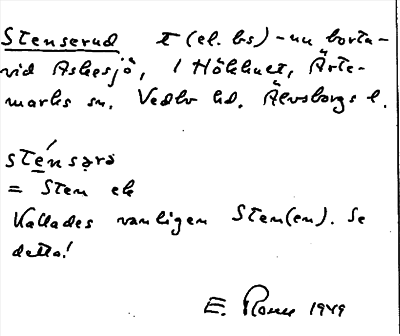 Stenserud t (el. bs) - nu borta -
vid Askesjö, i Hökhult, Ärte-
marks sn. Vedbo hd. Älvsborgs l.
sténsərə
= Sten ek
Kallades vanligen Sten(en). Se
detta!
E. 1949